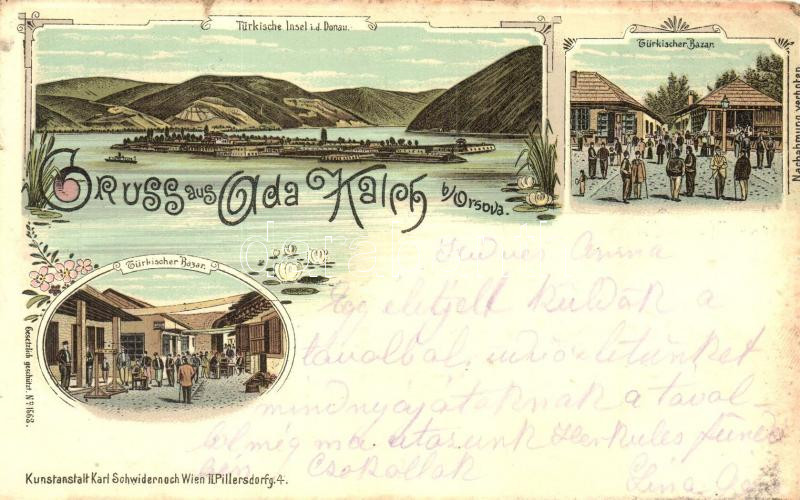 Türkische Insel i.d. Donau.
Türkischer Bazar.
Nachahmung verboten.
Gruss aus Ada Kaleh b/Orsova.
Türkischer Bazar.
Gesetzlich geschützt. No 1668.
Kedves Anna
Egy életjelt küldök a
távolból,
mindnyájatoknak a távol-
ból még ma utazunk Herkules fürdő
Csokollak
Kunstanstalt Karl Schwidernoch Wien II. Pillersdorfg. 4.